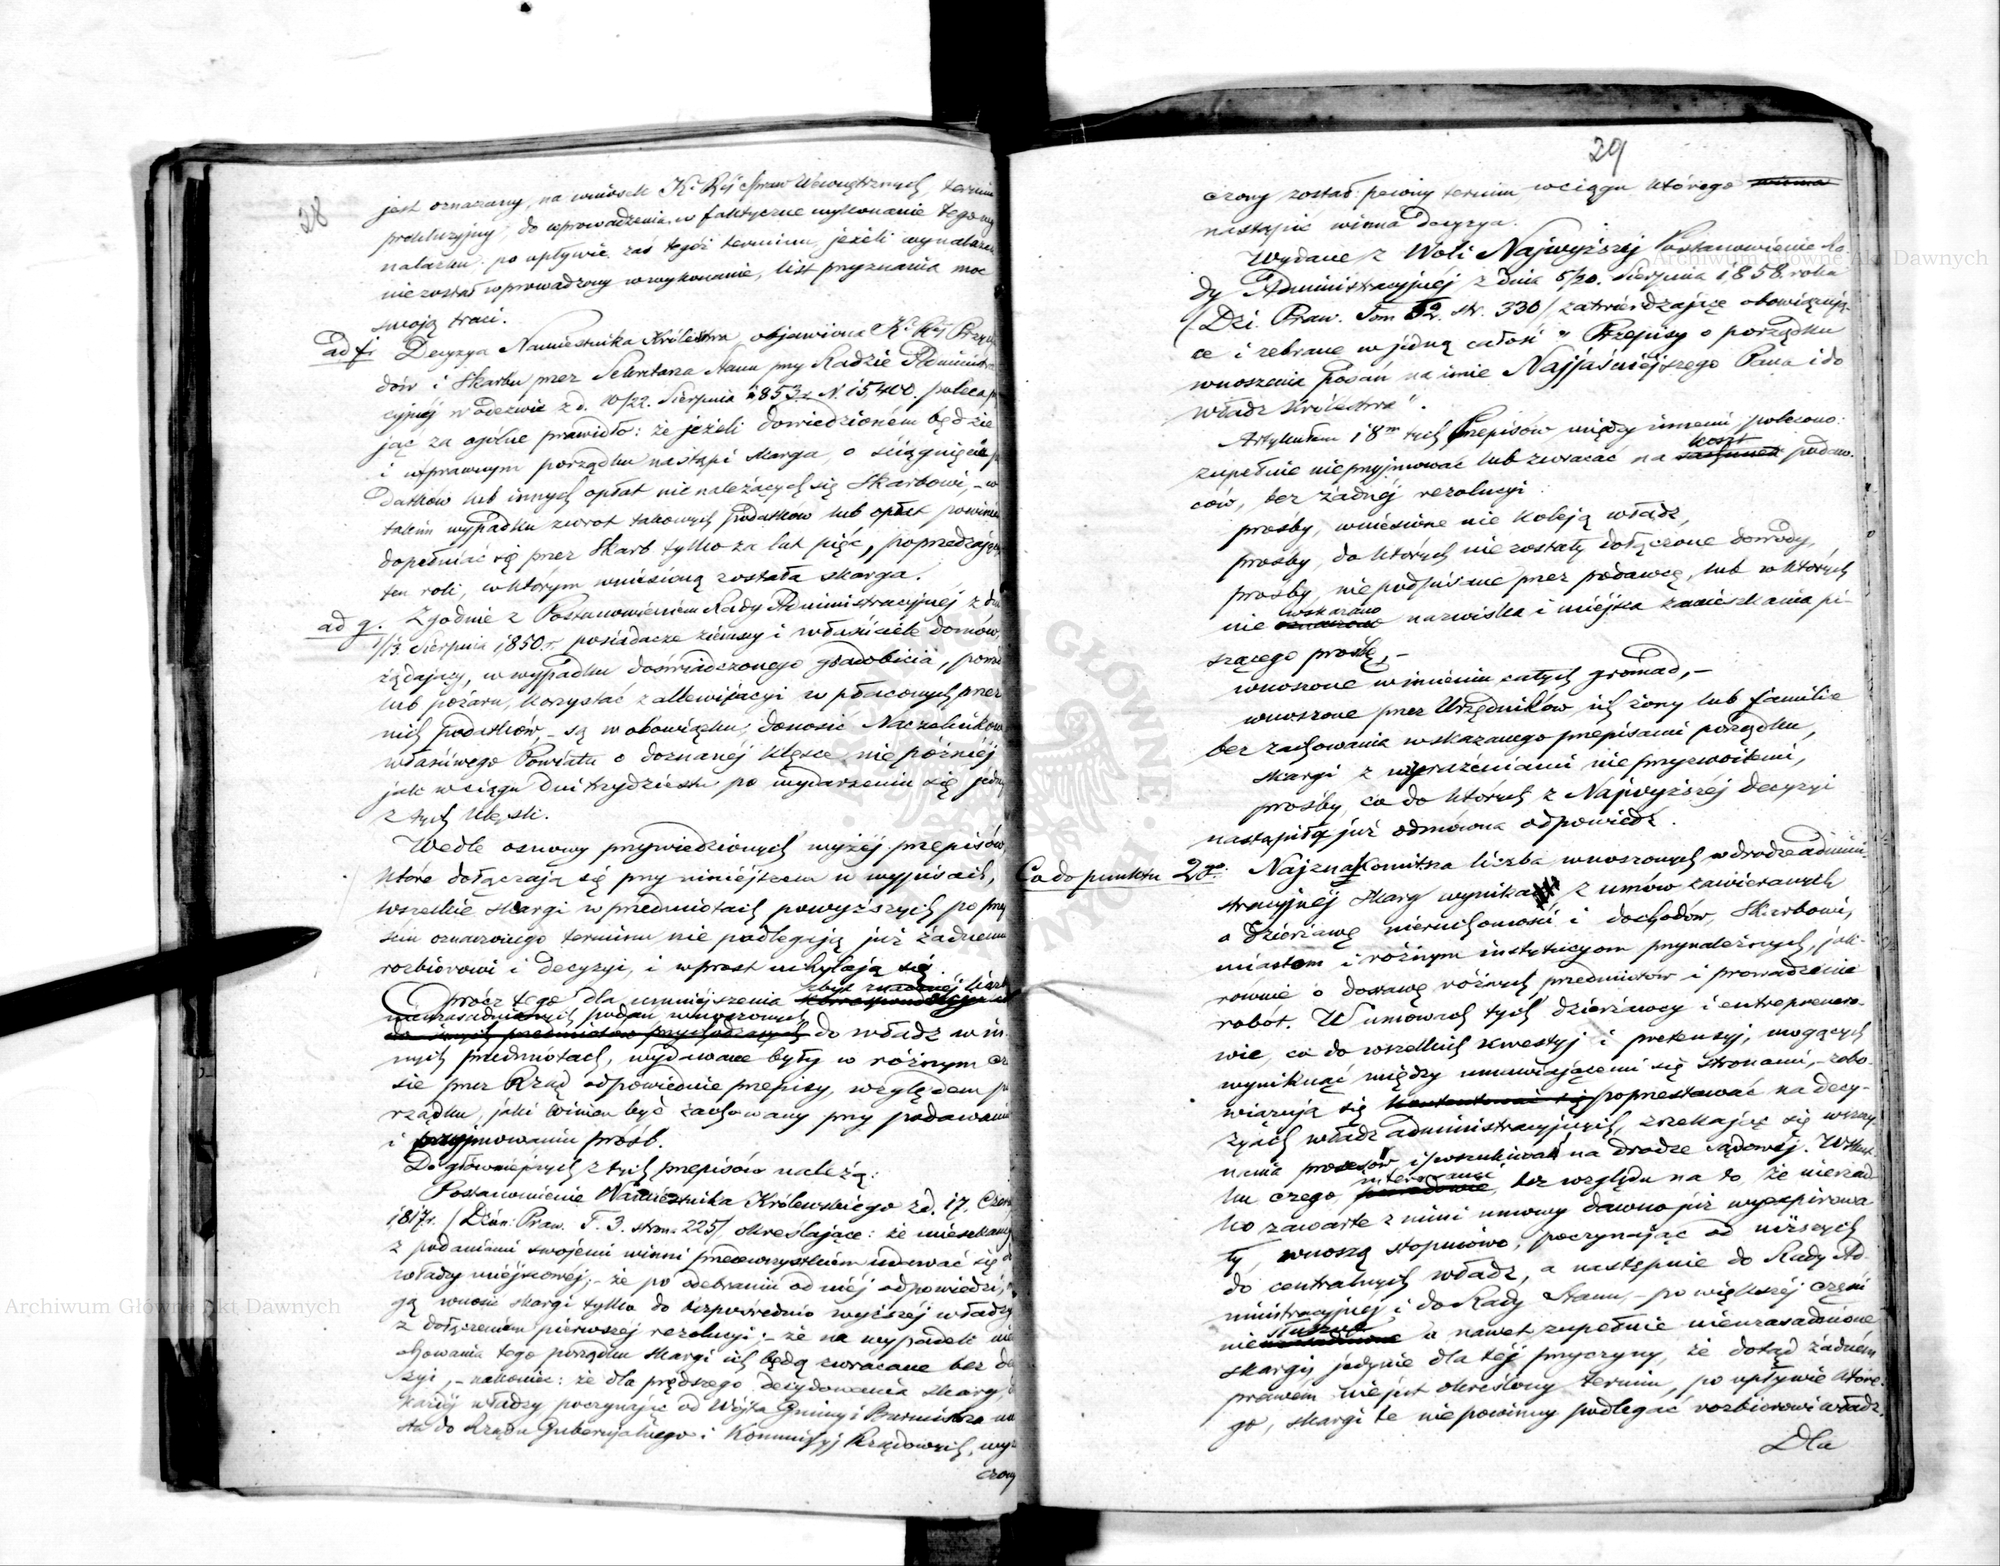 28
jest oznaczony, na wniosek K. Rz. Spraw Wewnętrznych, termin
prekluzyjny, do wprowadzenia w faktyczne wykonanie tego wy
nalazku. po upływie zaś tegoż terminu, jeżeli wynalazek
nie został wprowadzony w wykonanie, list przyznania moc
swoją traci.
ad f. Decyzya Namiestnika Królestwa, objawiona K. Rz. Przycho
dów i Skarbu przez Sekretarza Stanu przy Radzie Administra
cyjnej w odezwie z d. 10/22. Sierpnia 1853 r. N. 15,400. poleca
jąc za ogólne prawidło: że jeżeli dowiedzioném będzie
i w prawnym porządku nastąpi skarga, o ściągnięcie po
datków lub innych opłat nie należących się Skarbowi, – w
takim wypadku zwrot takowych podatków lub opłat powinien
dopełniać się przez Skarb tylko za lat pięć, poprzedzające
ten rok, w którym wniesioną została skarga.
ad g. Zgodnie z Postanowieniem Rady Administracyjnej z dnia
1/13. Sierpnia 1850. r. posiadacze ziemscy i właściciele domów,
żądający, w wypadku doświadczonego gradobicia, pomo
lub pożaru, korzystać z allewijacyi w płaconych przez
nich podatków, – są w obowiązku, donosić Naczelnikow
właściwego Powiatu o doznanéj klęsce nie później
jak w ciągu dni trzydziestu, po wydarzeniu się jednej
z tych klęsk.
Wedle osnowy przywiedzionych wyżéj przepisów,
które dołączają się przy niniéjszem w wypisach,
wszelkie skargi w przedmiotach powyższych po przej
ściu oznaczonego terminu nie podlegają już żadnemu
rozbiorowi i decyzyi, i wprost uchylają się.
zbyt znacznej liczby
Oprócz tego dla umniejszenia
nieuzasadnionych podań wnoszonych
do innych przedmiotów przychodzących do władz w in
nych przedmiotach, wydawane były w różnym cza
sie przez Rząd odpowiednie przepisy, względem po
rządku, jaki winien być zachowany przy podawaniu
i przyjmowaniu próśb.
Do główniejszych z tych przepisów należą:
Postanowienie Namiestnika Królewskiego z d. 17. Czerw
1817 r. / Dzien. Praw. T. 3. stron. 225 / określające: że mieszkańcy
z podaniami swojemi winni przedewszystkiem udawać się do
władzy miéjscowéj, – że po odebraniu od niéj odpowiedzi, mo
gą wnosić skargi tylko do bezpośrednio wyższéj władzy
z dołączeniem pierwszéj rezolucyi; – że na wypadek nie
chowania tego porządku skargi ich będą zwracane bez de
zyi, – nakoniec: że dla prędszego decydowania skarg, d
każdéj władzy poczynając od Wójta Gminy i Burmistrza mia
sta do Rządu Gubernijalnego i Kommissyj Rządowych, wyz
czony
29
czony został pewny termin w ciągu którego winna
nastąpić winna decyzya.
Wydane z Woli Najwyższéj Postanowienie Ra-
dy Administracyjnéj z dnia 8/20. Sierpnia 1858. roku
/ Dzi. Praw. Tom 52. str. 330 / zatwierdzające obowiązują-
ce i zebrane w jedną całość „ Przepisy o porządku
wnoszenia podań na imie Najjaśniéjszego Pana i do
władz Królestwa".
Artykułem 18m tych Przepisów między innemi polecono:
koszt
zupełnie nie przyjmować lub zwracać na rachunek podaw-
ców, bez żadnéj rezolucyi:
prośby, wniesione nie koleją władz,
prośby, do których nie zostały dołączone dowody,
prośby, nie podpisane przez podawcę, lub w których
wskazano
nie oznaczono nazwiska i miejsca zamieszkania pi-
szącego prośbę, –
wnoszone w imieniu całych gromad, –
wnoszone przez Urzędników, ich żony lub familie
bez zachowania wskazanego przepisami porządku,
skargi z wyrażeniami nieprzyzwoitemi,
prośby, co do których z Najwyższéj decyzyi
nastąpiła już odmówna odpowiedź.
Co do punktu 2go. Najznakomitsza liczba wnoszonych w drodze admini-
stracyjnéj skarg wynika z umów zawieranych
o dzierżawę nieruchomości i dochodów, Skarbowi,
miastom i różnym instytucyom przynależnych, jak
równie o dostawę różnych przedmiotów i prowadzenie
robót. W umowach tych dzierżawcy i entreprenero-
wie, co do wszelkich kwestyj i pretensyj, mogących
wyniknąć między umawiającemi się stronami, – zobo-
wiązują się kontentować się poprzestawać na decy-
zyach władz administracyjnych, zrzekając się wszczy-
nania procesów i poszukiwań na drodze sądowéj. W skut-
interessanci
ku czego, bez względu na to, że nierzad-
ko zawarte z nimi umowy dawno już wyexpirowa-
ły, wnoszą stopniowo, poczynając od niższych
do centralnych władz, a następnie do Rady Ad-
ministracyjnej, i do Rady Stanu, – po większéj części
słuszne
nieuzasadnione a nawet zupełnie nieuzasadnione
skargi, jedynie dla téj przyczyny, że dotąd żadném
prawem nie jest określony termin, po upływie które-
go, skargi te nie powinny podlegać rozbiorowi władz.
Dla
Archiwum Główne Akt Dawnych
Archiwum Główne Akt Dawnych